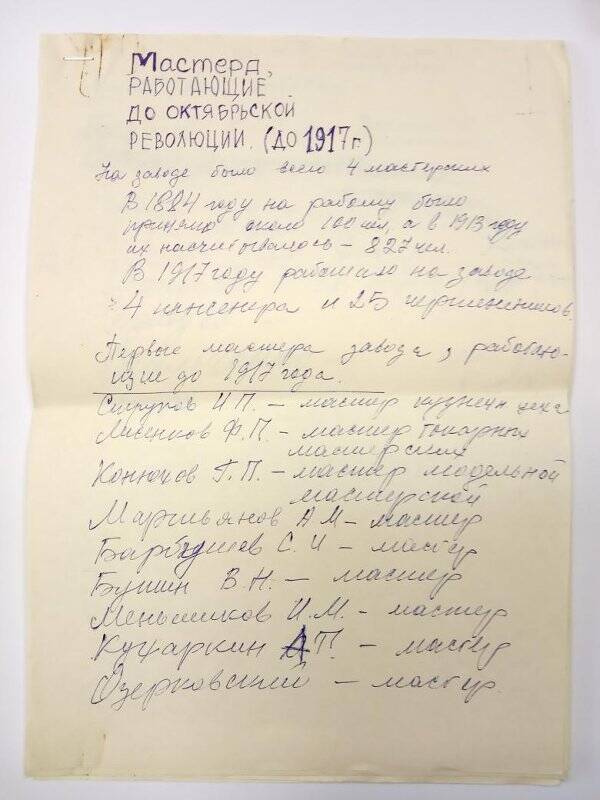 Мастера,
РАБОТАЮЩИЕ
ДО ОКТЯБРЬСКОЙ
РЕВОЛЮЦИИ. (ДО 1917г)
На заводе было всего 4 мастерских
В 1884 году на работу было
принято около 100 чел, а в 1913 году
их насчитывалось – 827 чел.
В 1917 году работало на заводе
4 инженера и 25 чертежников.
Первые мастера завода, работаю-
щие до 1917 года.
И.П. – мастер кузнечн цеха
Лисенков Ф.П. – мастер токарных
мастерских
Конюхов Г.П. – мастер модельной
мастерской
Мартьянов А М – мастер
С. И – мастер
Бушин В.Н. – мастер
Меньшиков И.М. – мастер
Кухаркин А П. – мастер
Озерковский – мастер.